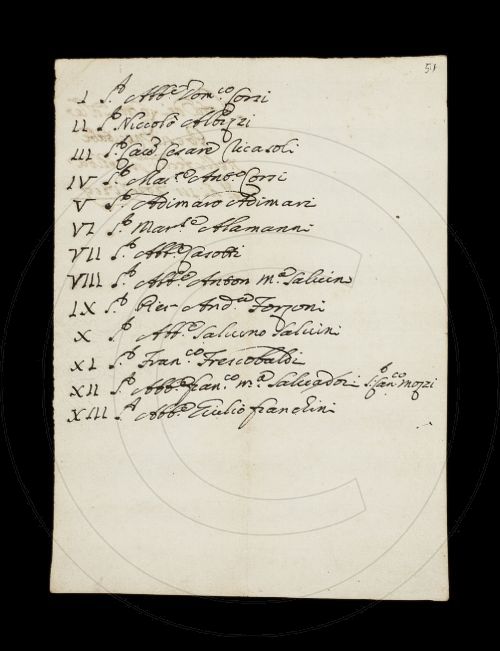 51
I S.r Abb.e Dom.co Corsi
II S.r Niccolò Albizzi
III S.r Cav.e Cesare Ricasoli
IV S.r Mar.e Ant.o Corsi
V S.r Adimaro Adimari
VI S.r Mar.e Alamanni
VII S.r Abb.e Casotti
VIII S.r Abb.e Anton M.a Salvini
IX S.r Pier And.a Forzoni
X S.r Abb.e Salvino Salvini
XI S.r Fran.co Frescobaldi
XII S.r Abb.e Fran.co M.a Salvadori S.r Fran.co Mozzi
XIII S.r Abb.e Giulio Franchini